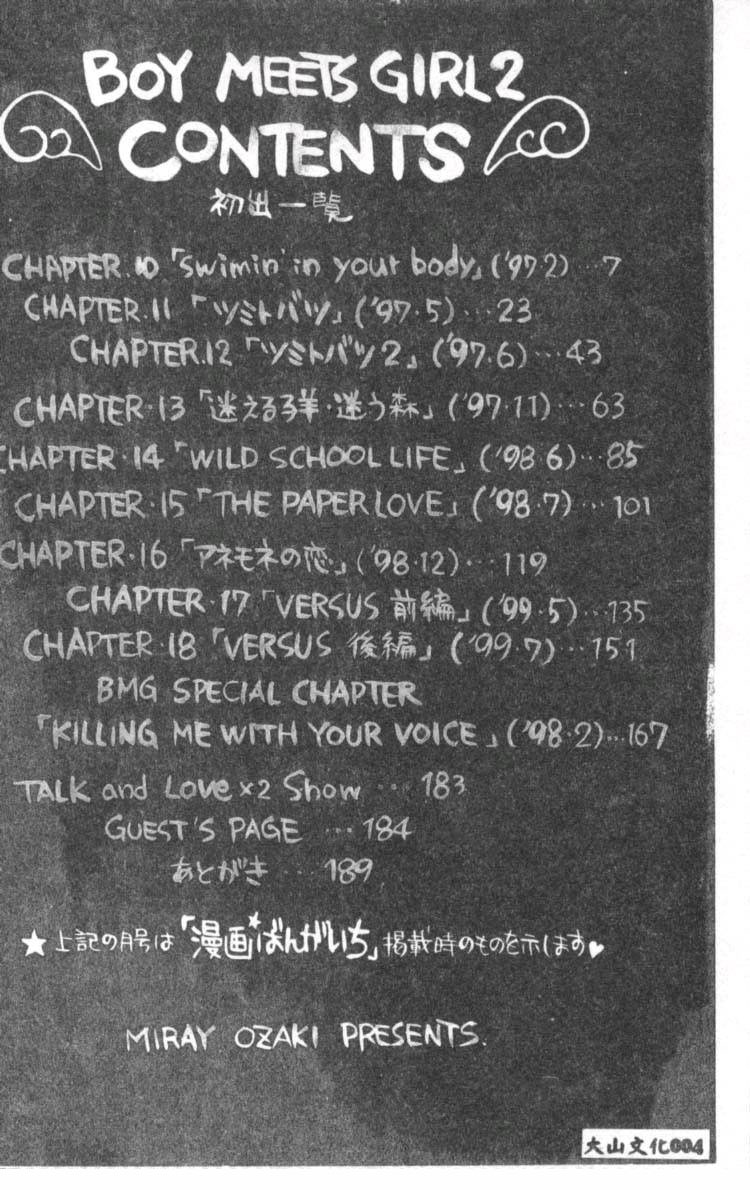 BOY MEETS GIRL 2
CONTENTS
初出一覧
CHAPTER.10「swimin' in your body」('97・2)…7
CHAPTER・11「ツミトバツ」('97・5)…23
CHAPTER.12「ツミトバツ2」('97.6)…43
CHAPTER・13「迷える子羊・迷う森」('97・11)…63
CHAPTER・14「WILD SCHOOL LIFE」('98 6)…85
CHAPTER・15「THE PAPER LOVE」('98・7)…101
CHAPTER・16「アネモネの恋」('98・12)…119
CHAPTER・17「VERSUS 前編」('99・5)…135
CHAPTER・18「VERSUS 後編」('99・7)…151
BMG SPECIAL CHAPTER
「KILLING ME WITH YOUR VOICE」('98・2)…167
TALK and Love×2 Show …183
GUEST'S PAGE …184
あとがき …189
★上記の月号は「漫画★ばんがいち」掲載時のものを示します♥
MIRAY OZAKI PRESENTS.
大山文化004